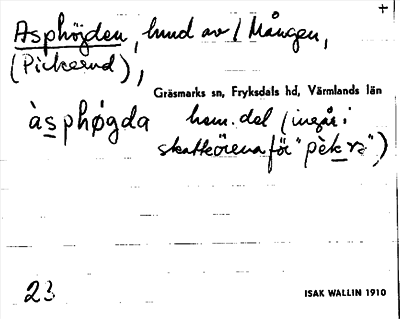 +
Asphöjden, hmd av / Mången,
(Pickerud),
Gräsmarks sn, Fryksdals hd, Värmlands län
àsphøgda hem. del (ingår i
skatteörena för "pèk rz",)
23
ISAK WALLIN 1910